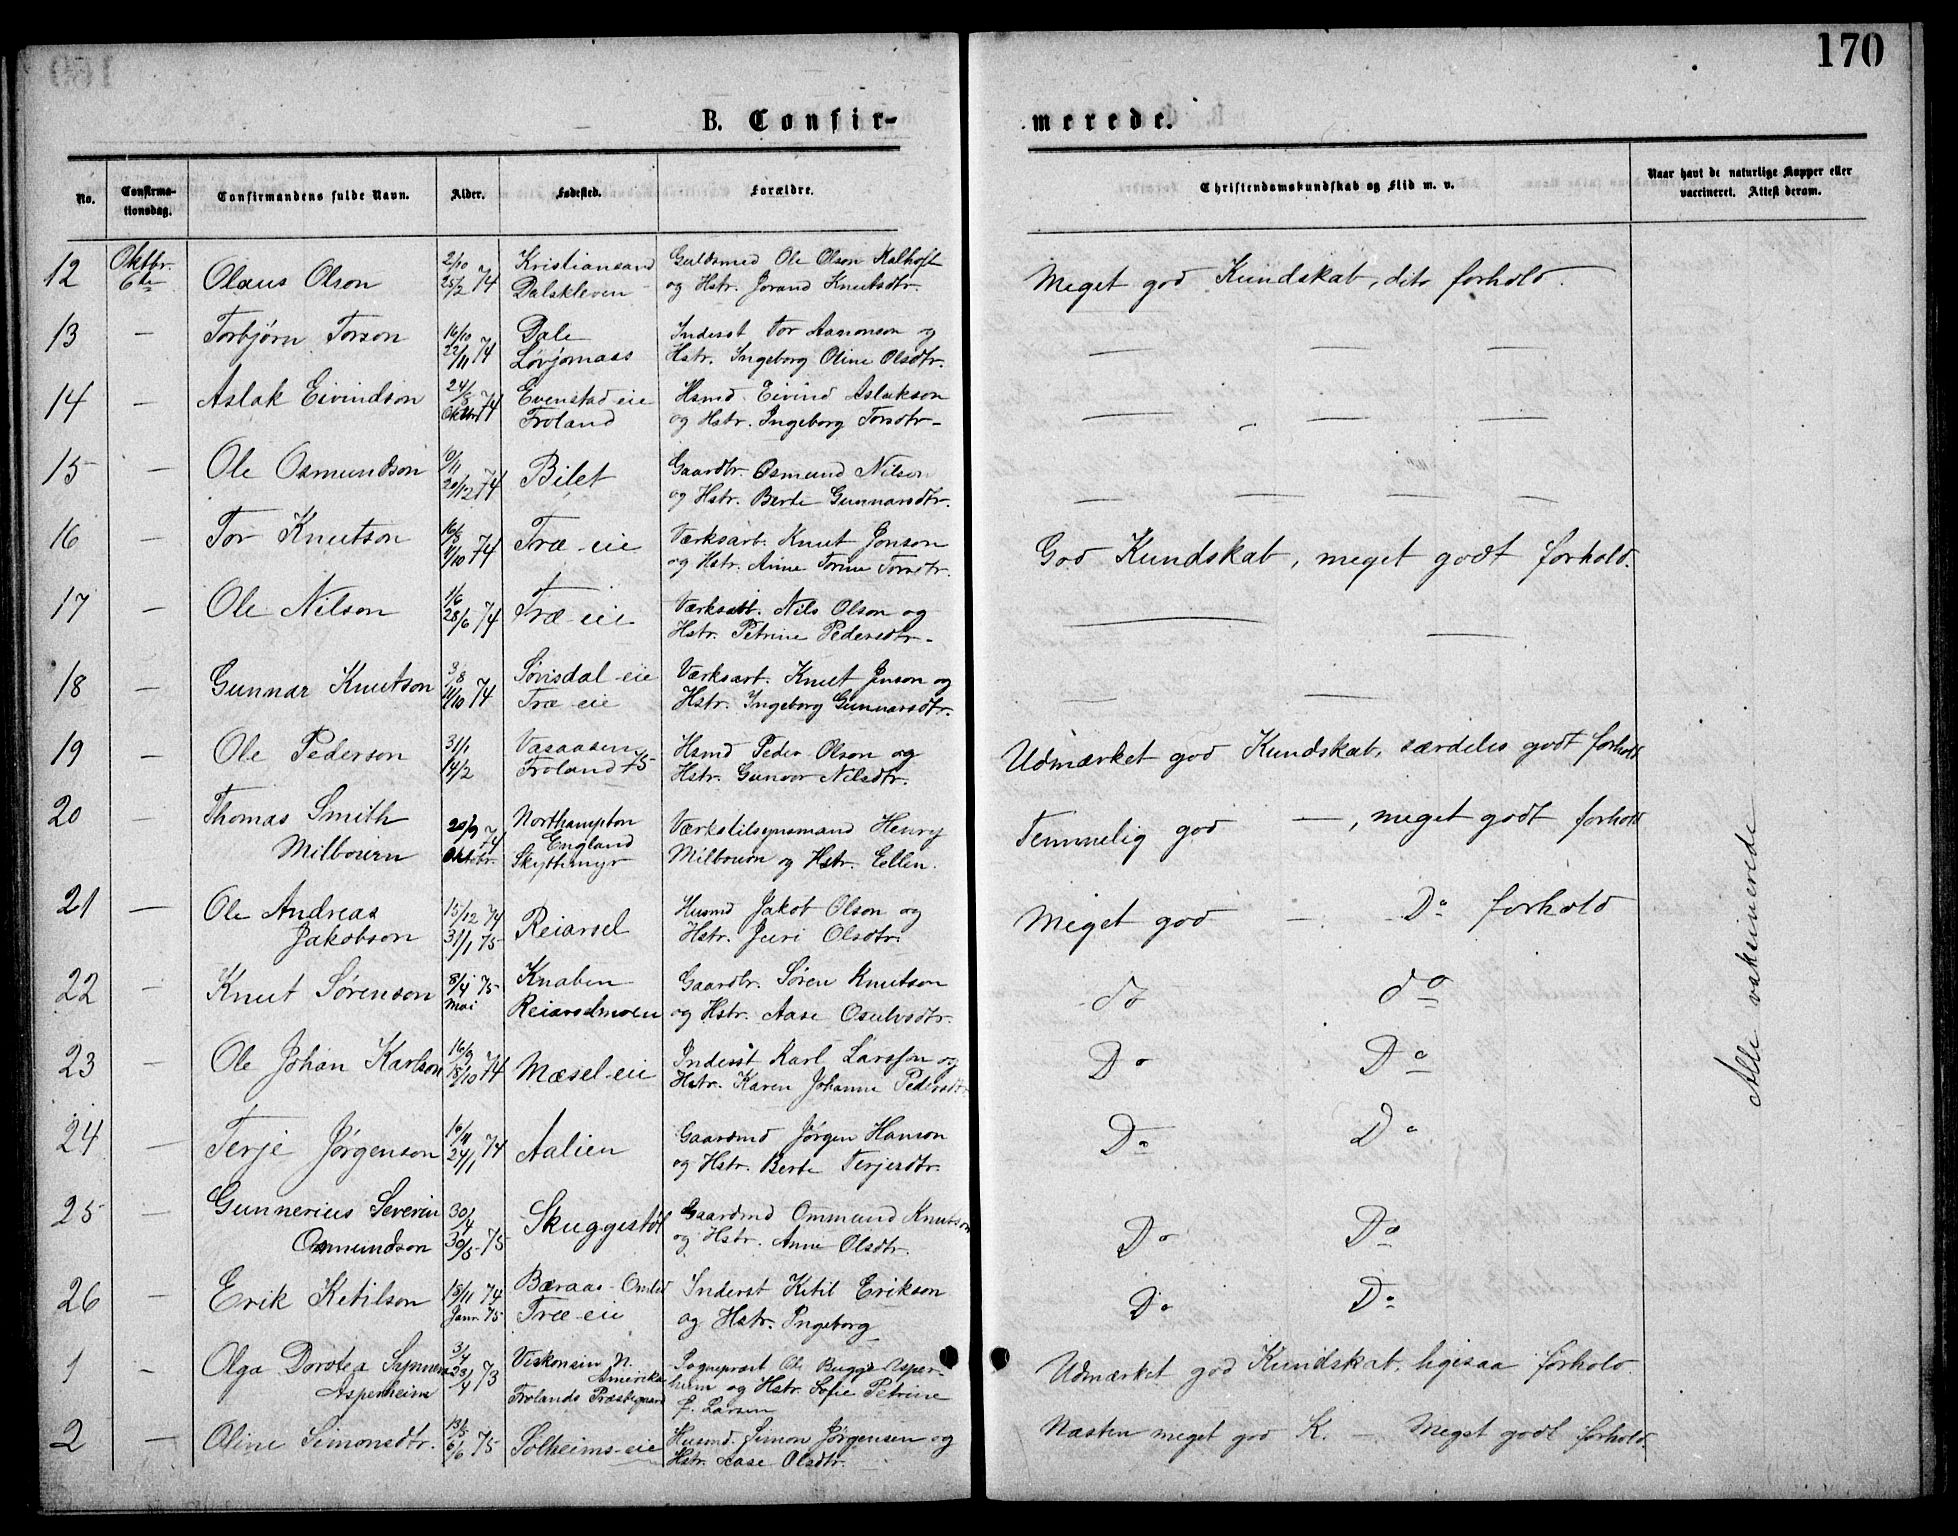 170
B. Confir-
merede.
No.
Confirma-
tionsdag.
Confirmandens fulde Navn.
Alder.
Fødested.
Forældre.
Christendomskundskab og Flid m. v.
Naar havt de naturlige Kopper eller
vaccineret. Attest derom.
12 Oktbr. 6te Olaus Olson 2/10 25/2 74 Kristiansand Dalskleven
Guldsmed Ole Olson Kalhoft
og Hstr. Jorand Knutsdtr.
Meget god Kundskab, dito forhold.
13 — Torbjørn Torson 16/10 22/11 74 Dale Løvjomaas
Inderst Tor Aasonson og
Hstr. Ingeborg Oline Olsdtr.
— — —
14 — Aslak Eivindson 24/8 Oktbr 74 Evenstad-eie Froland
Hsmd. Eivind Aslakson
og Hstr. Ingeborg Torsdtr.
— — —
15 — Ole Osmundson 9/11 20/12 74 Bilet
Gaardbr. Osmund Nilson
og Hstr. Berte Gunnarsdtr.
— — — —
16 — Tor Knutson 16/8 11/10 74 Træ-eie
Værksarb. Knut Jonson
og Hstr. Anne Torine Torsdtr.
God Kundskab, meget godt forhold.
17 — Ole Nilson 1/6 28/6 74 Træ-eie
Værksarb. Nils Olson og
Hstr. Petrine Pedersdtr.
— —
18 — Gunnar Knutson 3/8 11/10 74 Sørisdal-eie Træ-eie
Værksarb. Knut Jenson og
Hstr. Ingeborg Gunnarsdtr.
— —
19 — Ole Pederson 31/1 14/2 Vasaasen Froland 75
Hsmd Peder Olson og
Hstr. Gunvor Nilsdtr.
Udmærket god Kundskab, særdeles godt forhold
20 — Thomas Smith Milbourn 20/9 74 Oktobr. Northampton England Skyttemyr
Værkstilsynsmand Henry
Milbourn og Hstr. Ellen.
Temmelig god —, meget godt forhold
21 — Ole Andreas Jakobson 15/12 74 31/1 75 Reiarsel
Husmd Jakob Olson og
Hstr. Juri Olsdtr.
Meget god — Do forhold
22 — Knut Sørenson 8/4 75 Mai Knaben Reiarselmoen
Gaardbr. Søren Knutson
og Hstr. Aase Osulvsdtr.
do do
23 — Ole Johan Karlson 16/9 18/10 74 Mæsel-eie
Inderst Karl Larsson og
Hstr. Karen Johanne Pedersdtr
Do Do
24 — Terje Jørgenson 16/11 24/1 74 Aalien
Gaardmd Jørgen Hanson
og Hstr. Berte Terjesdtr.
Do Do
25 — Gunnerius Severin Osmundson 30/4 30/5 75 Skuggestøl
Gaardmd Ommund Knutson
og Hstr. Anne Olsdtr.
Do Do
26 — Erik Ketilson 18/11 74 Janr. 75 Bæraas Omlid Træ-eie
Inderst Ketil Erikson
og Hstr. Ingeborg
Do Do
1 — Olga Dorotea Asperheim 3/4 23/4 73 Viskonsin N. Amerika Frolands Præstegaard
Sogneprest Ole Bugge Asper-
heim og Hstr. Sofie Petrine
f. Larsen
Udmærket god Kundskab, ligesaa forhold.
2 — Oline Simonsdtr. 13/5 6/6 75 Solheims-eie
Husmd. Simon Jørgensen og
Hstr. Aase Olsdtr.
Næsten meget god K. — Meget godt forhold.
Alle vaksinerede